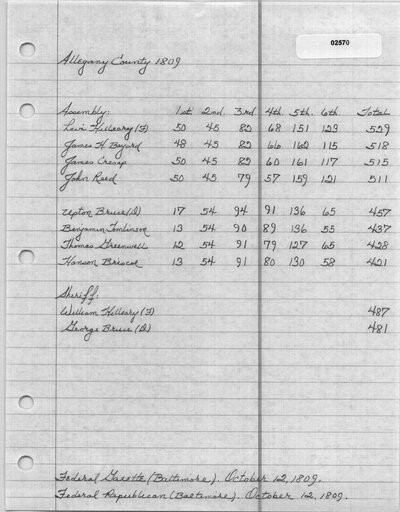 02570
Allegany County 1809
Assembly: 1st 2nd 3rd 4th 5th 6th Total
Levi Hilleary (F) 50 45 82 68 151 123 529
James H. Bayard 48 45 82 66 162 115 518
James Cresap 50 45 82 60 161 117 515
John Reed 50 45 79 57 159 121 511
Upton Bruce (D) 17 54 94 91 136 65 457
Benjamin Tomlinson 13 54 90 89 136 55 437
Thomas Greenwell 12 54 91 79 127 65 428
Hanson Briscoe 13 54 91 80 130 58 421
Sheriff:
William Hilleary (F) 487
George Bruce (D) 481
Federal Gazette (Baltimore). October 12, 1809.
Federal Republican (Baltimore). October 12, 1809.